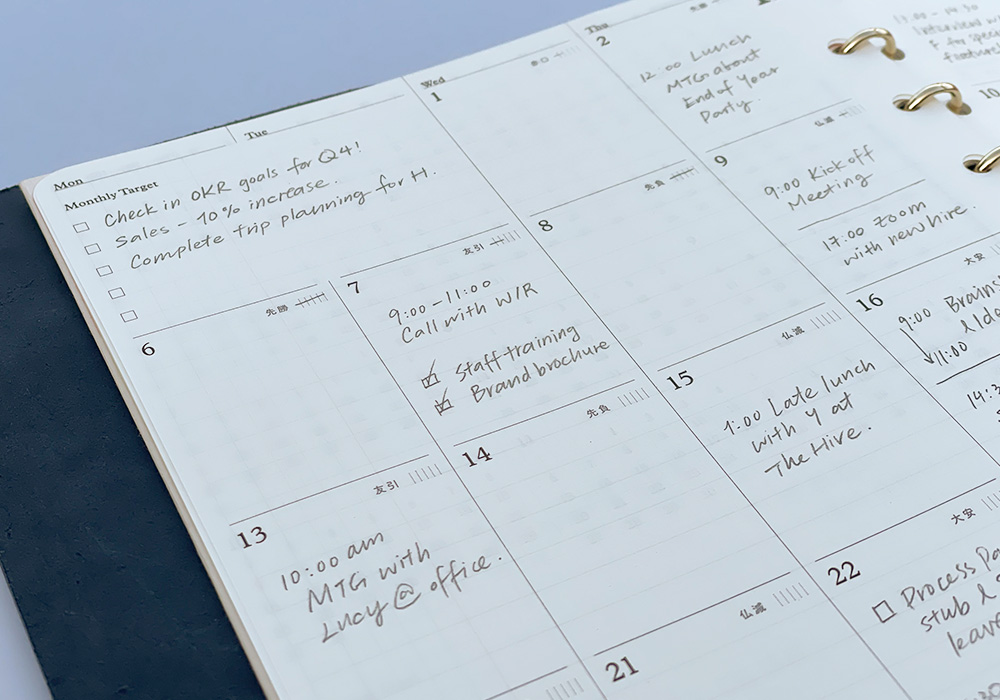 Mon
Tue
Wed
Thu
Monthly Target
Check in OKR goals for Q4!
Sales - 10% increase.
Complete trip planning for H.
1
2
12:00 Lunch
MTG about
End of Year
Party.
6
先勝
7
友引
9:00-11:00
Call with W/R
Staff training
Brand brochure
8
先負
9
仏滅
9:00 Kick off
Meeting
17:00 Zoom
with new hire.
10
13
友引
10:00 am
MTG with
Lucy @ office.
14
先負
15
仏滅
1:00 Late lunch
with Y at
The Hive.
16
大安
9:00
11:00
21
仏滅
22
大安
Process
stub &